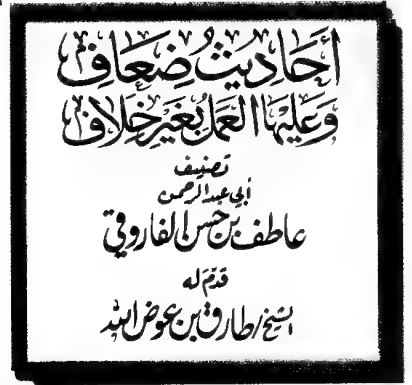 أَحَادِيثُ ضِعَافٌ
وَعَلَيْهَا العَمَلُ بِغَيْرِ خِلَافٍ
تصنيف
أبي عبد الرحمن
عاطف بن حسن الفاروقي
قدم له
الشيخ/ طارق بن عوض الله